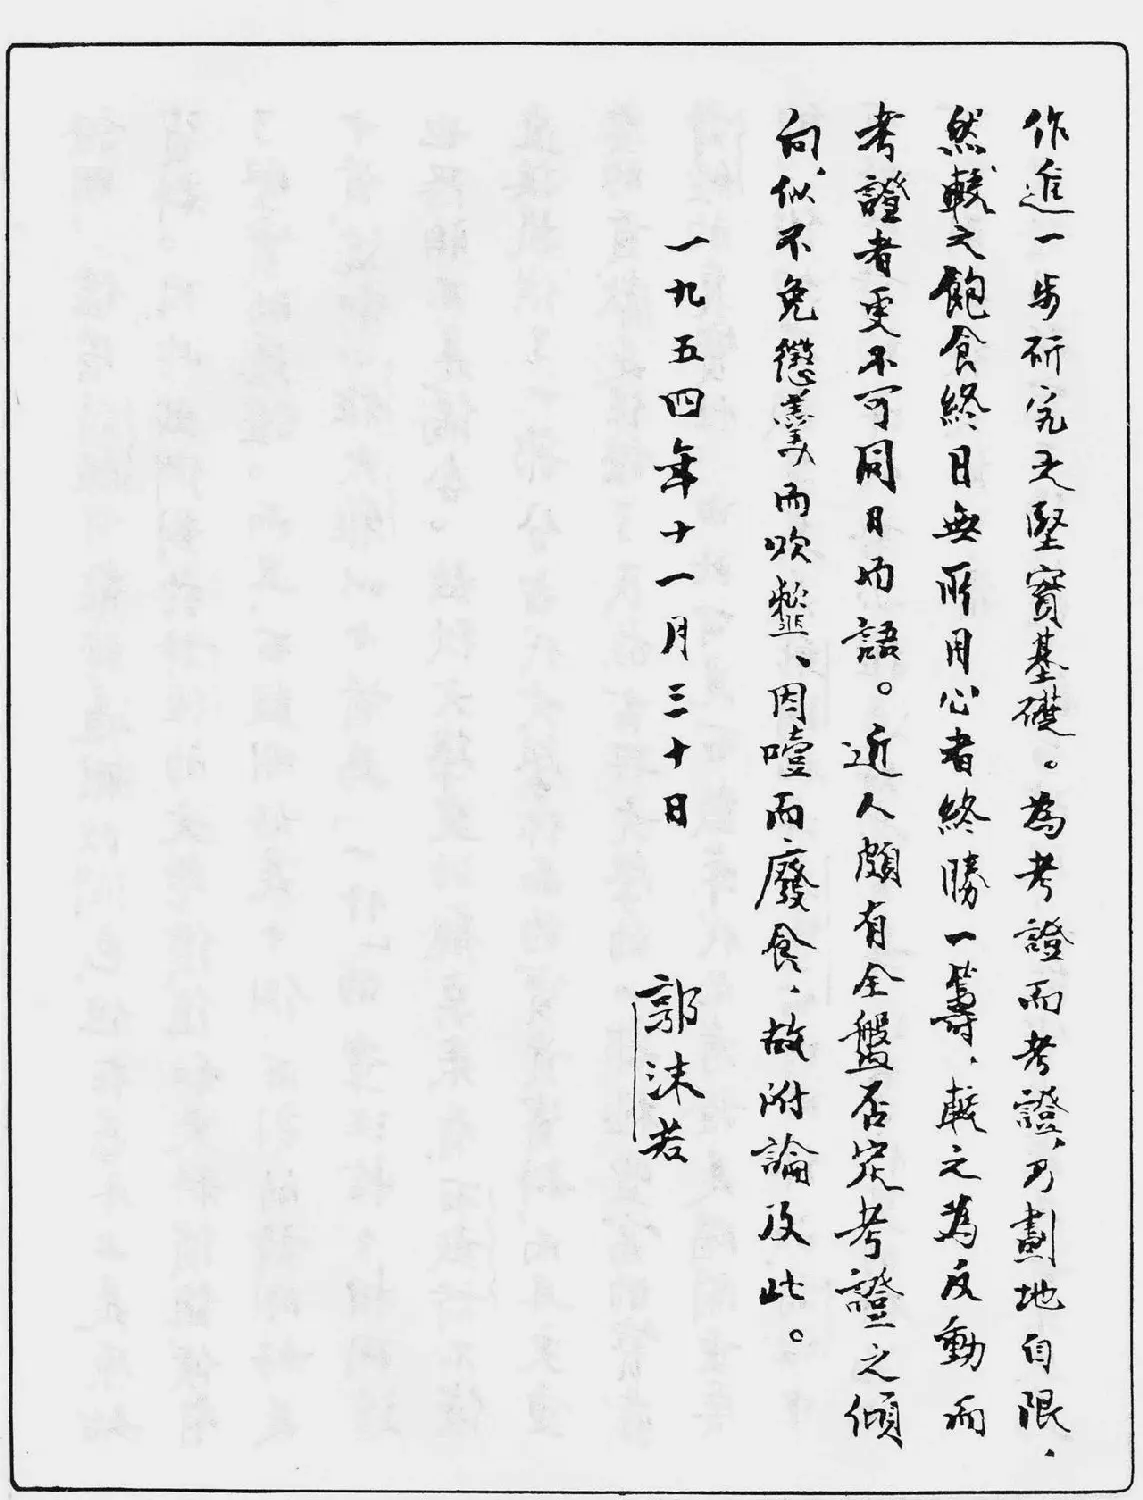 作進一步研究之堅實基礎。為考證而考證，乃劃地自限，
然較之飽食終日無所用心者終勝一籌，較之為反動而
考證者更不可同日而語。近人頗有全盤否定考證之傾
向，似不免懲羹而吹虀、因噎而廢食，故附論及此。
一九五四年十一月三十日
郭沫若